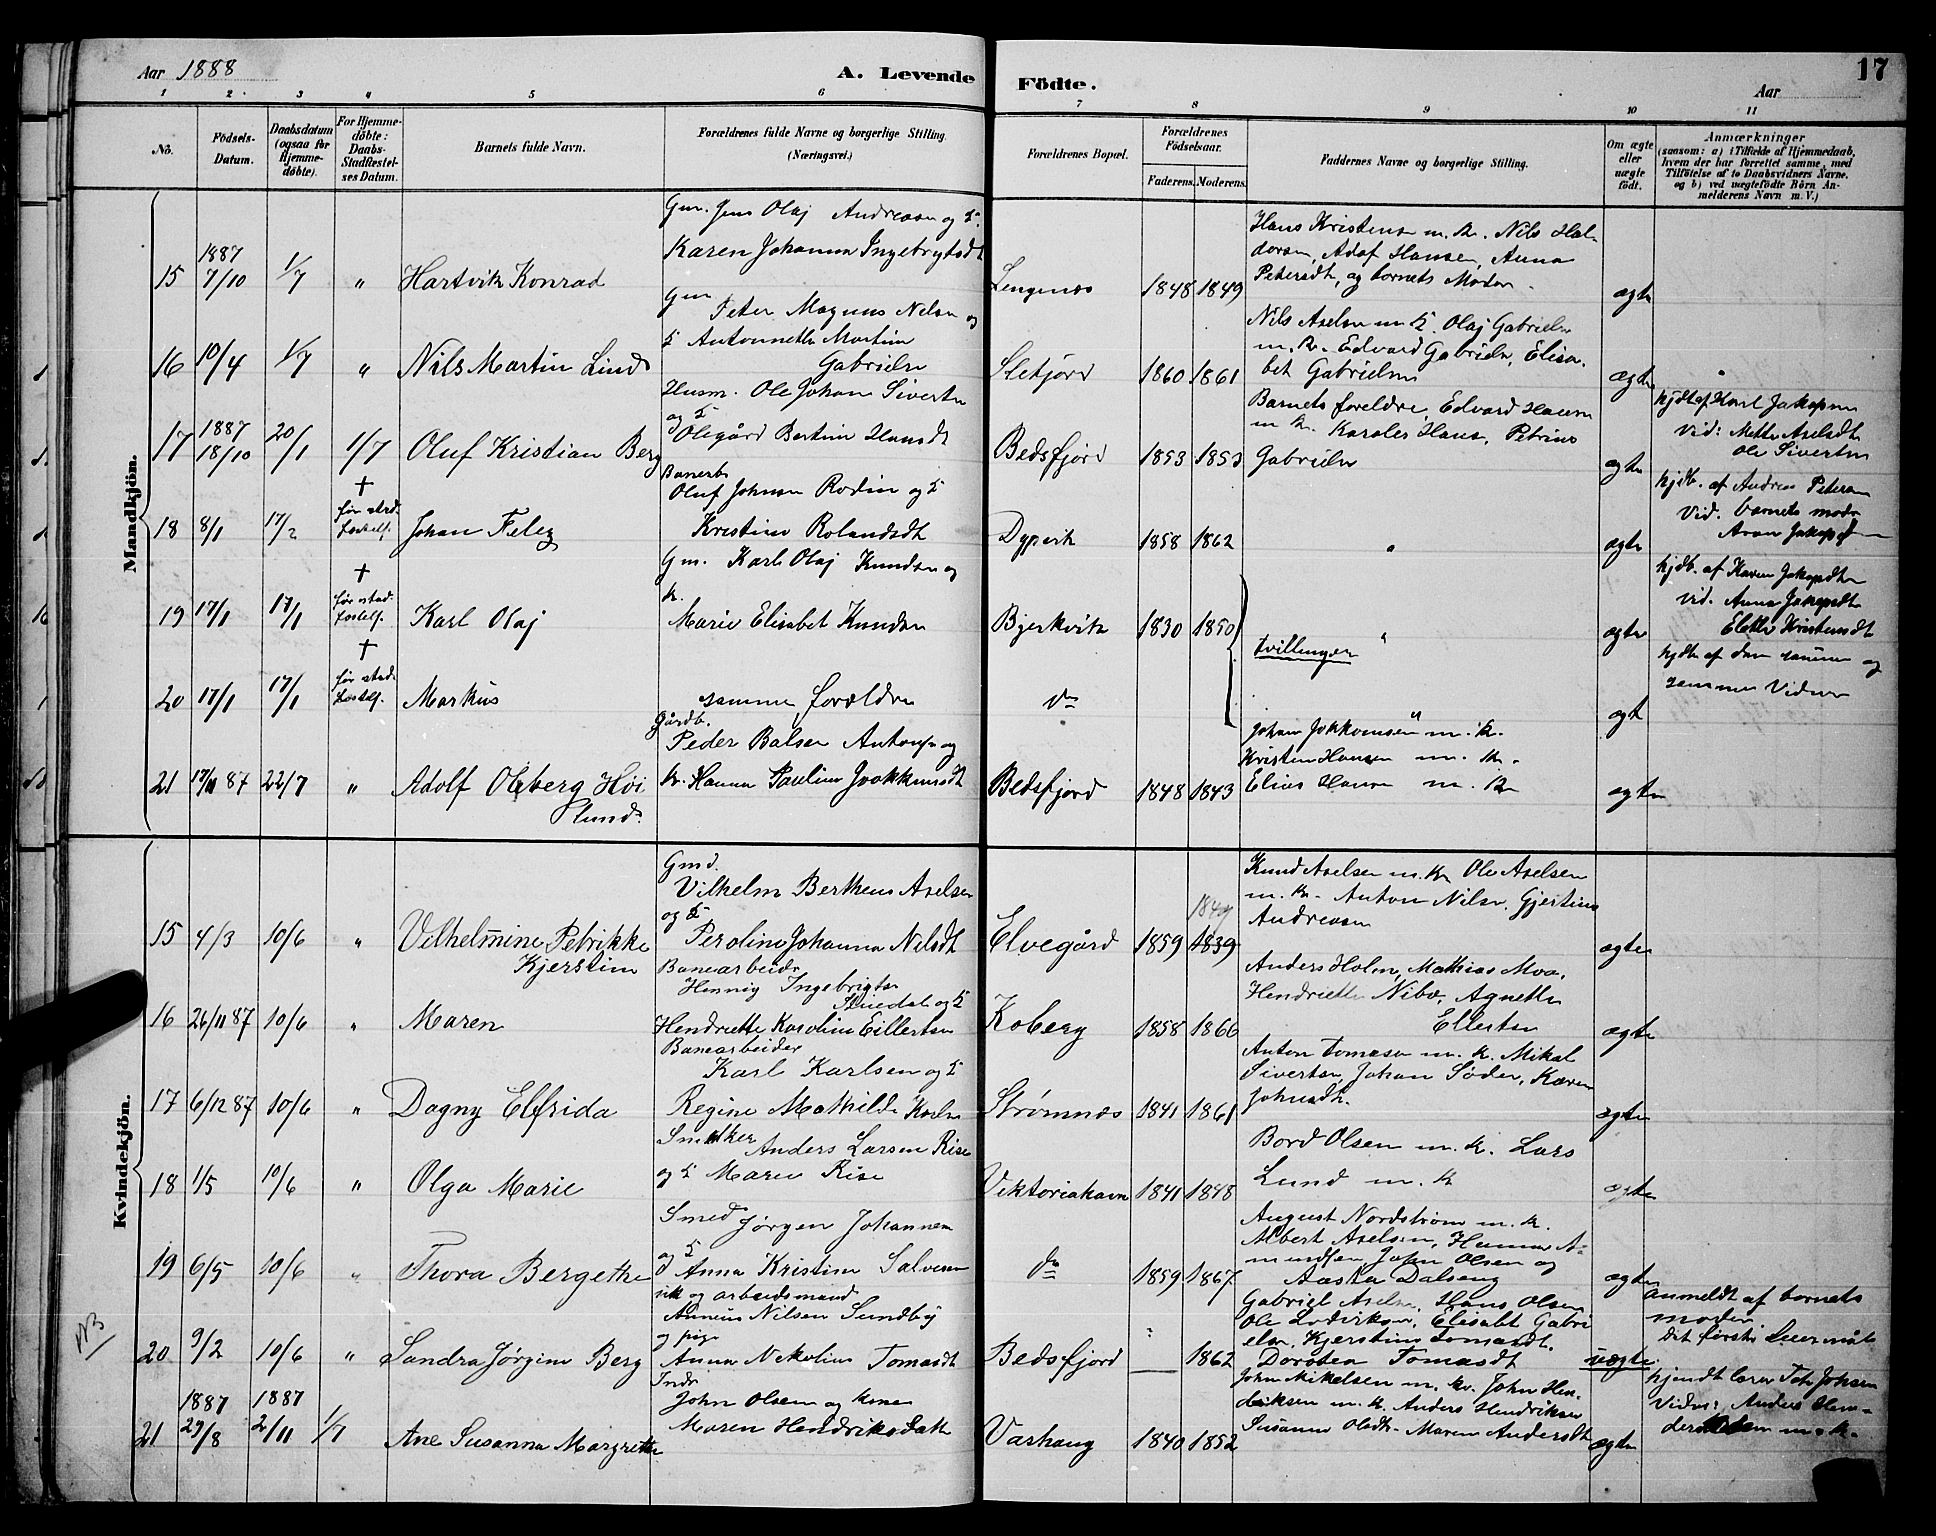 Aar 1888
A. Levende
Födte.
Aar
17
1 2 3 4 5 6 7 8 9 10 11
No.
Födsels-Datum.
Daabsdatum (ogsaa for Hjemme-döbte).
For Hjemme-döbte: Daabs-Stadfæstel-ses Datum.
Barnets fulde Navn.
Forældrenes fulde Navne og borgerlige Stilling.
(Næringsvei.)
Forældrenes Bopæl.
Forældrenes Födselsaar.
Faderens. Moderens.
Faddernes Navne og borgerlige Stilling.
Om ægte eller uægte födt.
Anmærkninger
(saasom: a) i Tilfælde af Hjemmedaab, hvem der har forrettet samme, med Tilföielse af to Daabsvidners Navne, og b) ved uægtefödte Börn An-melderens Navn m. V.)
Mandkjön.
15 1887 7/10 1/7 " Hartvik Konrad
Gm. Jens Olaj Andreasen og k.
Karen Johanna Ingebrigtsdt
Lengenes 1848 1849
Hans Kristensen m. k. Nils Hal-
dorsen, Adof Hansen, Anna
Petersdt, og barnets Moder.
ægte
16 10/4 1/7 " Nils Martin Lind
Gm
Peter Magnus Nilsen og
k Antonnethe Martine
Gabrielsn
Sletjord 1860 1861
Nils Axelsen m k. Olaj Gabrielsn
m. k. Edvard Gabrielsn, Elisa-
bet Gabrielsen
ægte
17 1887 18/10 20/1 1/7 Oluf Kristian Berg
Husm. Ole Johan Sivertsn
og k
Olegård Bertine Hansdt
Bedsfjord 1853 1853
Barnets foreldre, Edvard Hansen
m k. Karoles Hans, Petrine
Gabrielsn
ægte
hjdt af Karl Jakopsen
Vid: Mette Axelsdt
Ole Sivertsn
18 8/1 17/2 † før stad-fæstels. Johan Felex
Banearb
Oluf Johnsen Rodin og k
Kristine Rolandsdt
Dypvik 1858 1862
"
ægte
hjdb. af Andreas Petersen
Vid. barnets moder
19 17/1 17/1 † før stad-fæstels. Karl Olaj
Gm. Karl Olaj Knudsen og
k.
Marie Elisabet Knudsen
Bjerkvik 1830 1850
tvillinger "
ægte
hjdb. af Karen Jakopsdt
Vid. Anna Jakopsdt
Elethe Kristensdt
20 17/1 17/1 † før stad-fæstels. Markus
samme forældre
do
"
ægt
hjdb af den samme og
samme Vidner
21 17/11 87 22/7 " Adolf Oleberg Høi
Plund
Gårdb.
Peder Balser Antonsn og
k. Hanna Pauline Joakkimsdt
Bedsfjord 1848 1843
Johan Jokkomsen m. k.
Kristen Hansen m. k.
Elias Hansen m. k
ægte
Kvindekjön.
15 4/3 10/6 " Vilhelmine Petrikke
Kjerstine
Gmd.
Vilhelm Bertheus Axelsen
og k
Peroline Johanna Nilsdt
Elvegård 1859 1849 1839
Knud Axelsen m. k Ole Axelsen
m. k. Anton Nilsn, Gjertine
Andreasen
ægte
16 26/11 87 10/6 " Maren
Banearbeidr
Hennig Ingebrigtsn
og k
Hendriette Karoline Eillertsen
Koberg 1858 1866
Anders Holm, Mathias Moa,
Hendriette Nibo, Agnethe
Ellertsn
ægte
17 6/12 87 10/6 " Dagny Elfrida
Banearbeider
Karl Karlsen og k
Regine Mathilde Karlsn
Strømnes 1841 1861
Anton Tomasen m. k. Mikal
Sivertsn, Johan Søder, Karen
Johnsdt.
ægte
18 1/5 10/6 " Olga Marie
Snedker
Anders Larsen Rise
og k Maren Rise
Viktoriahavn 1841 1848
Bord Olsen m. k. Lars
Lund m. k
ægte
19 6/5 10/6 " Thora Bergethe
Smed Jørgen Johannesen
og k
Anna Kristine Salvesen
do 1859 1867
August Nordstrøm m. k.
Albert Axelsen, Hanna A-
mundsen John Olsen og
Aaska Dalseng
ægte
NB
20 9/2 10/6 " Sandra Jørgine Berg
ik og arbeidsmand
Anneus Nilsen Sundby
og pige
Anna Nikoline Tomasdt
Bedsfjord — 1862
Gabriel Axelsn, Hans Olsen
Ole Lodiksen, Elisabt Gabri
elsn, Kjerstine Tomasdt.
Dorotea Tomasdt
uægte
anmeldt af barnets
moder.
Det første Leiermåls
21 1887 29/8 1887 2/11 1/7 Ane Susanna Margrethe
Indr
John Olsen og kone
Maren Hendriksdatt
Varhaug 1840 1852
John Mikelsen m. k. John Hen-
driksen m. k. Anders Hendriksen
Susanne Olsdt. Maren Andersdt
ægte
hjemdt lærer Johnsen
Vidne: Anders Hen-
m. k.